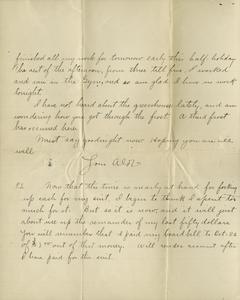 finished all my work for tomorrow early this half holiday
The rest of the afternoon, from three till five, I worked
and ran in the Gym, and so am glad I have no work
tonight.
I have not heard about the greenhouse lately, and am
wondering how you got through the frost. A third frost
has occurred here.
Must say goodnight now. Hoping you are all
well
Your
P.S. Now that the time is nearly at hand for forking
up cash for my suit, I begin to think I spent too
much for it. But so it is now, and it will just
about use up the remainder of my last fifty dollars
You will remember that I paid my board bill to Oct. 26
of out of this money. Will render account after
I have paid for the suit.